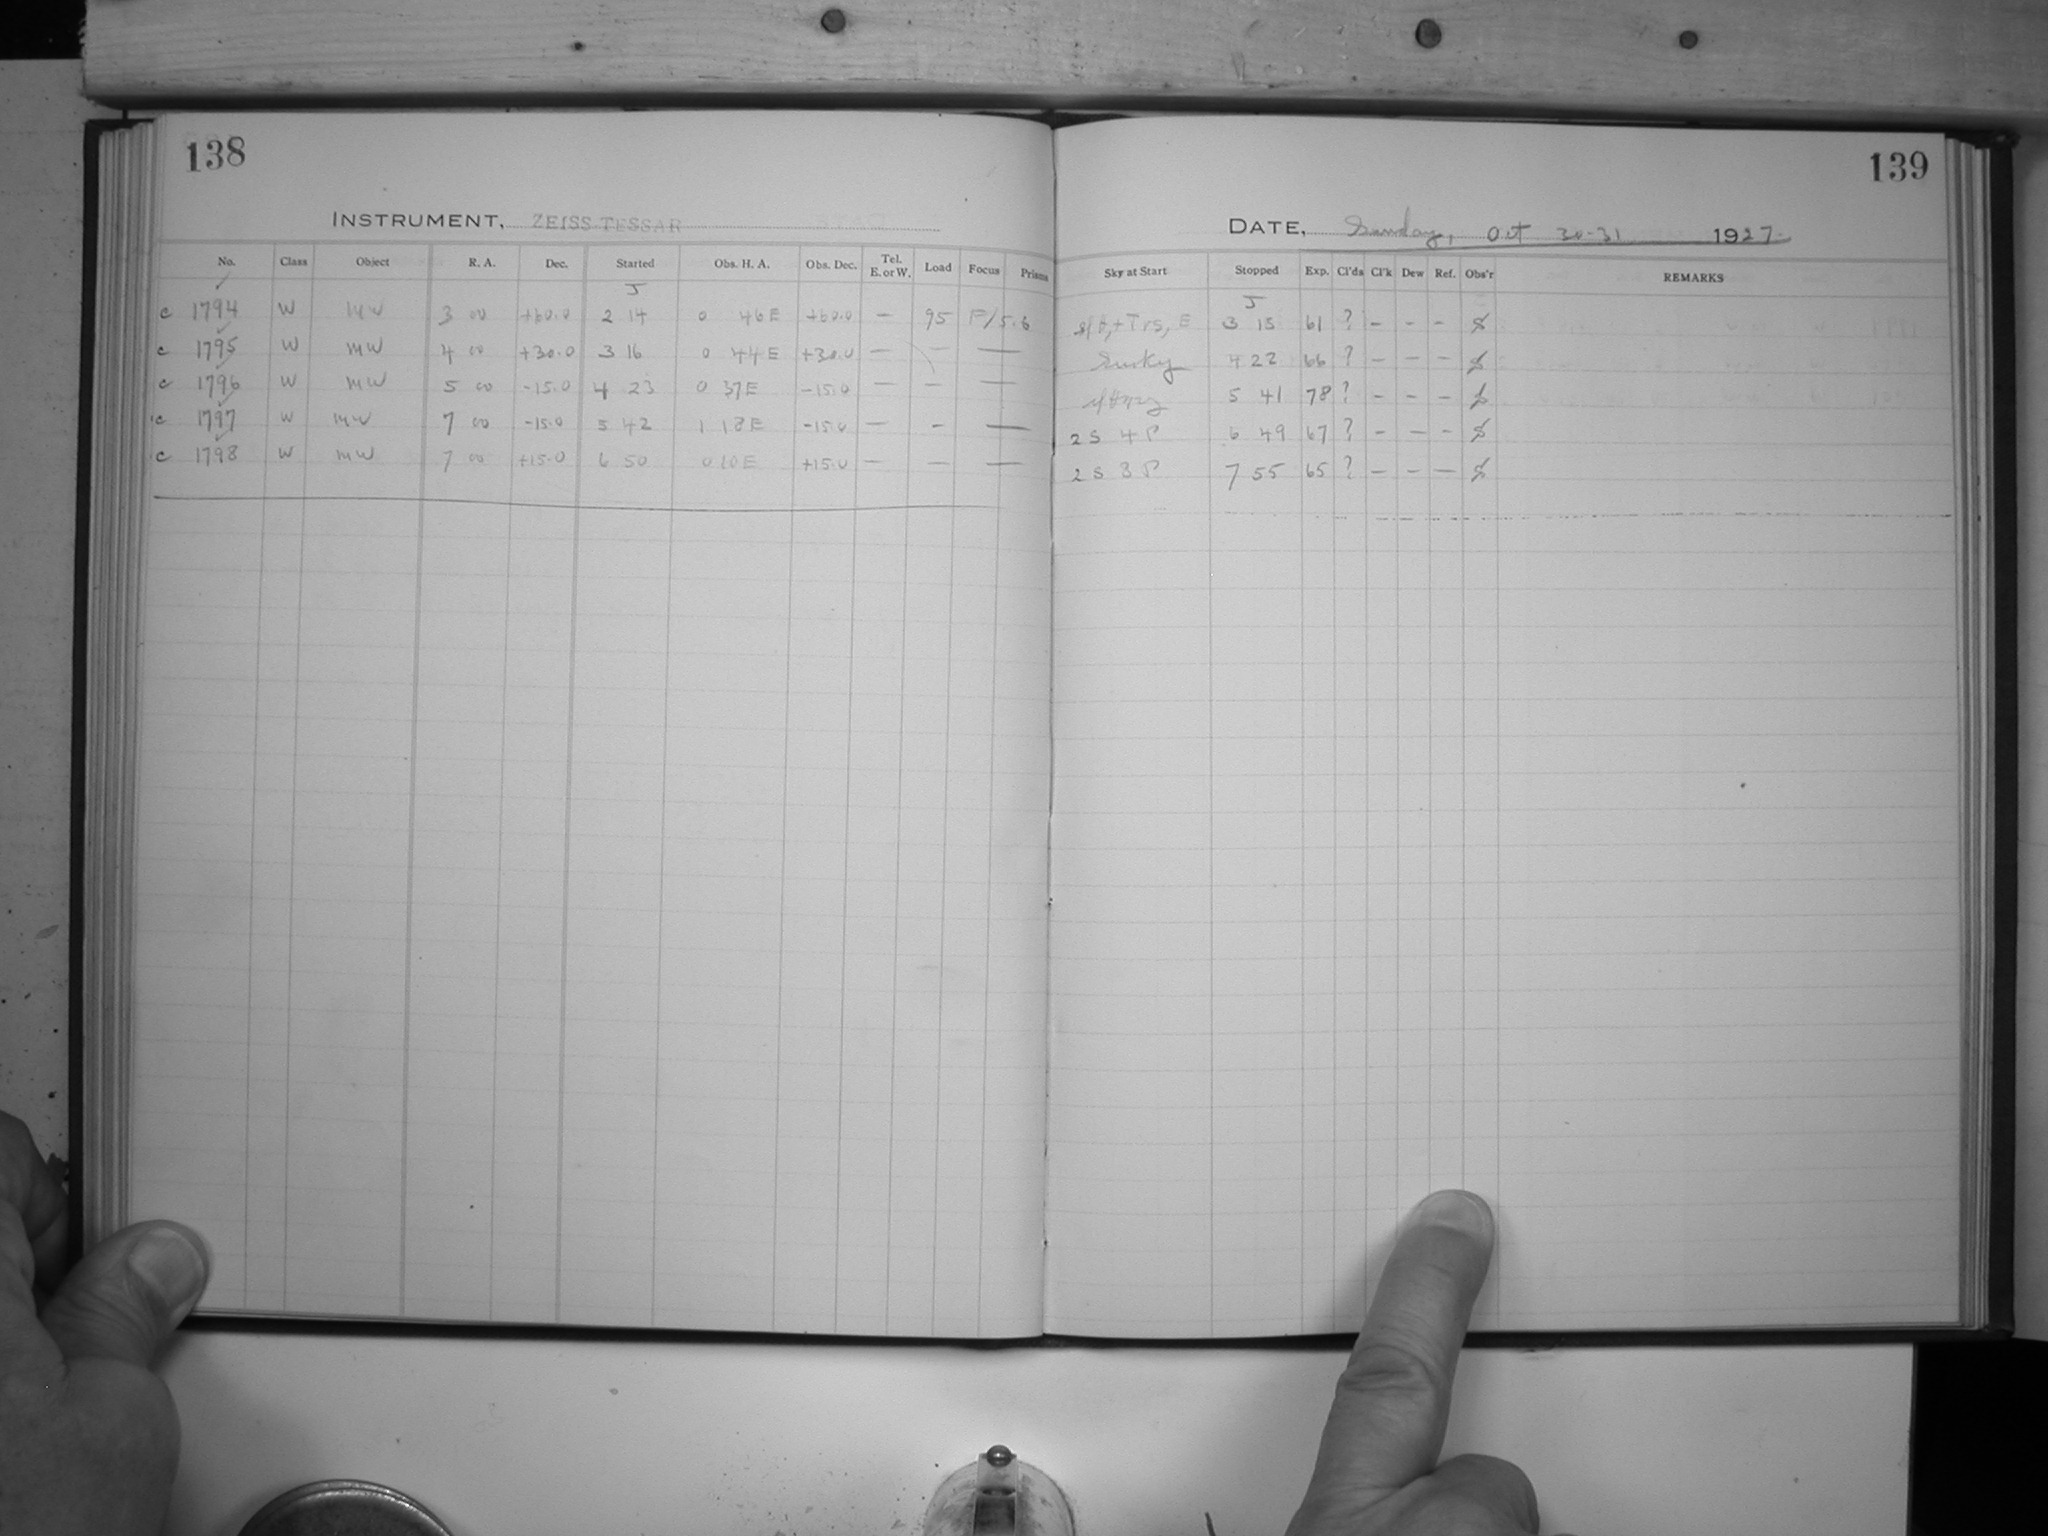 138
INSTRUMENT, ZEISS-TESSAR
No. Class Object R. A. Dec. Started Obs. H. A. Obs. Dec. Tel. E. or W. Load Focus Prisms
J
c 1794 W MW 3 00 +60.0 2 14 0 46E +60.0 — 95 F/5.6
c 1795 W MW 4 00 +30.0 3 16 0 44E +30.0 — — —
c 1796 W MW 5 00 -15.0 4 23 0 37E -15.0 — — —
c 1797 W MW 7 00 -15.0 5 42 1 18E -15.0 — - —
c 1798 W MW 7 00 +15.0 6 50 0 10E +15.0 — — —
139
DATE, Sunday, Oct 30-31 1927
Sky at Start Stopped Exp. Cl'ds Cl'k Dew Ref. Obs'r REMARKS
J
E 3 15 61 ? - - -
4 22 66 ? - - -
5 41 78 ? - - -
2 S 4 P 6 49 67 ? - — -
2 S 3 P 7 55 65 ? — — —